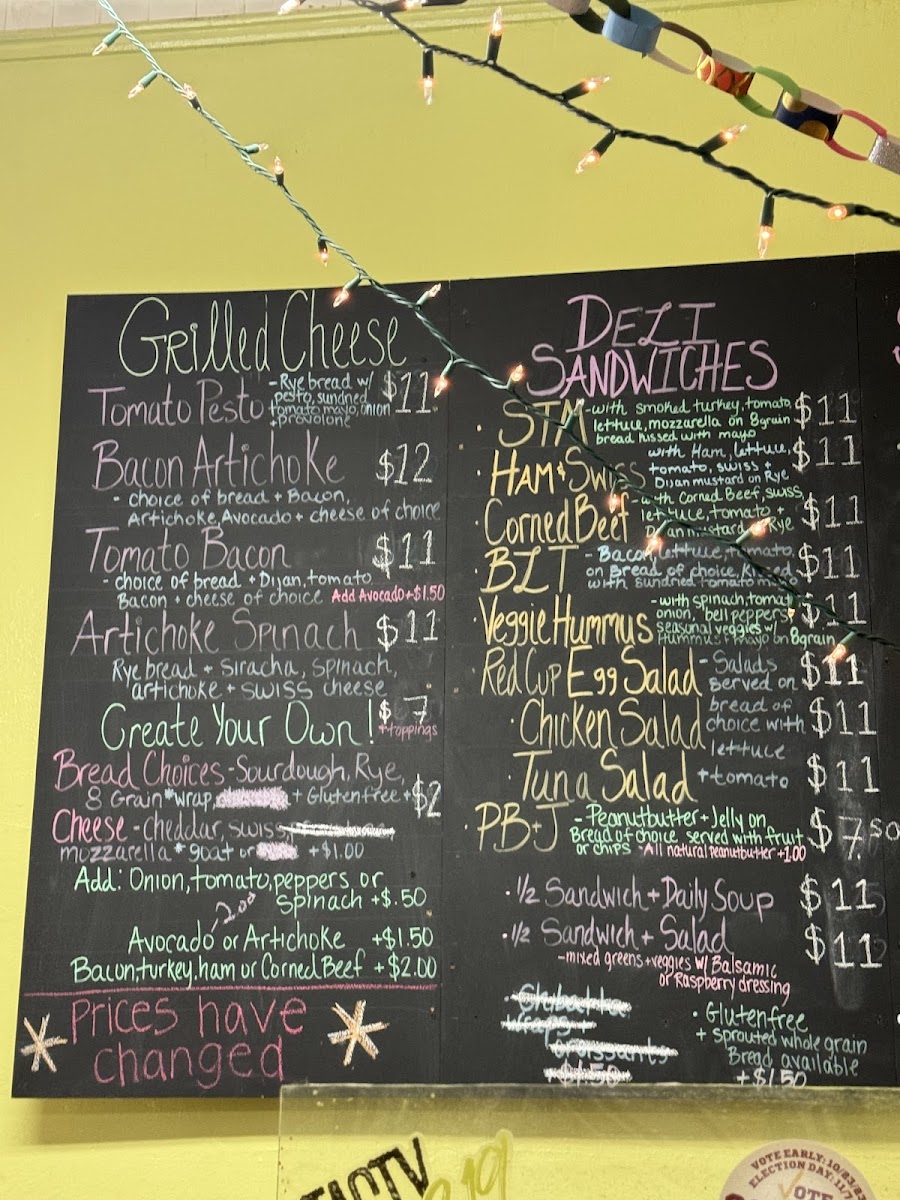 Grilled Cheese
Tomato Pesto -Rye bread w/ $11
pesto, sundried
tomato mayo, onion
+ provolone
Bacon Artichoke $12
- choice of bread + Bacon,
Artichoke, Avocado + cheese of choice
Tomato Bacon $11
- choice of bread + Dijan, tomato
Bacon + cheese of choice Add Avocado +$1.50
Artichoke Spinach $11
Rye bread + Siracha, Spinach,
artichoke + swiss cheese
Create Your Own! $7
+toppings
Bread Choices - Sourdough, Rye,
8 Grain *wrap, + Glutenfree +$2
Cheese - cheddar, swiss
mozzarella * goat or +$1.00
Add: Onion, tomato, peppers or
Spinach +$.50
2.00
Avocado or Artichoke +$1.50
Bacon, turkey, ham or Corned Beef +$2.00
Prices have
changed
DELI
SANDWICHES
STM -with smoked turkey, tomato, $11
lettuce, mozzarella on 8grain
bread kissed with mayo
· Ham + Swiss with Ham, lettuce, $11
tomato, swiss +
Dijan mustard on Rye
· Corned Beef -with Corned Beef, swiss $11
lettuce, tomato +
Dijan mustard Rye
· BLT - Bacon, lettuce, tomato, $11
on Bread of choice, Kissed
with sundried tomato mayo
· Veggie Hummus -with spinach, tomato $11
onion, bell peppers,
seasonal veggies w/
Hummus + mayo on 8grain
Red Cup Egg Salad - Salads $11
served on
· Chicken Salad bread of $11
choice with
lettuce
· Tuna Salad + tomato $11
· PB+J - Peanutbutter + Jelly on, $7.50
Bread of choice served with fruit
or chips * All natural peanutbutter +1.00
· 1/2 Sandwich + Daily Soup $11
· 1/2 Sandwich + Salad $11
-mixed greens + veggies w/ Balsamic
or Raspberry dressing
wraps +
croissants
+$1.50
· Glutenfree
+ Sprouted whole grain
Bread available
+$1.50
VOTE EARLY: 10/23
ELECTION DAY: 11/